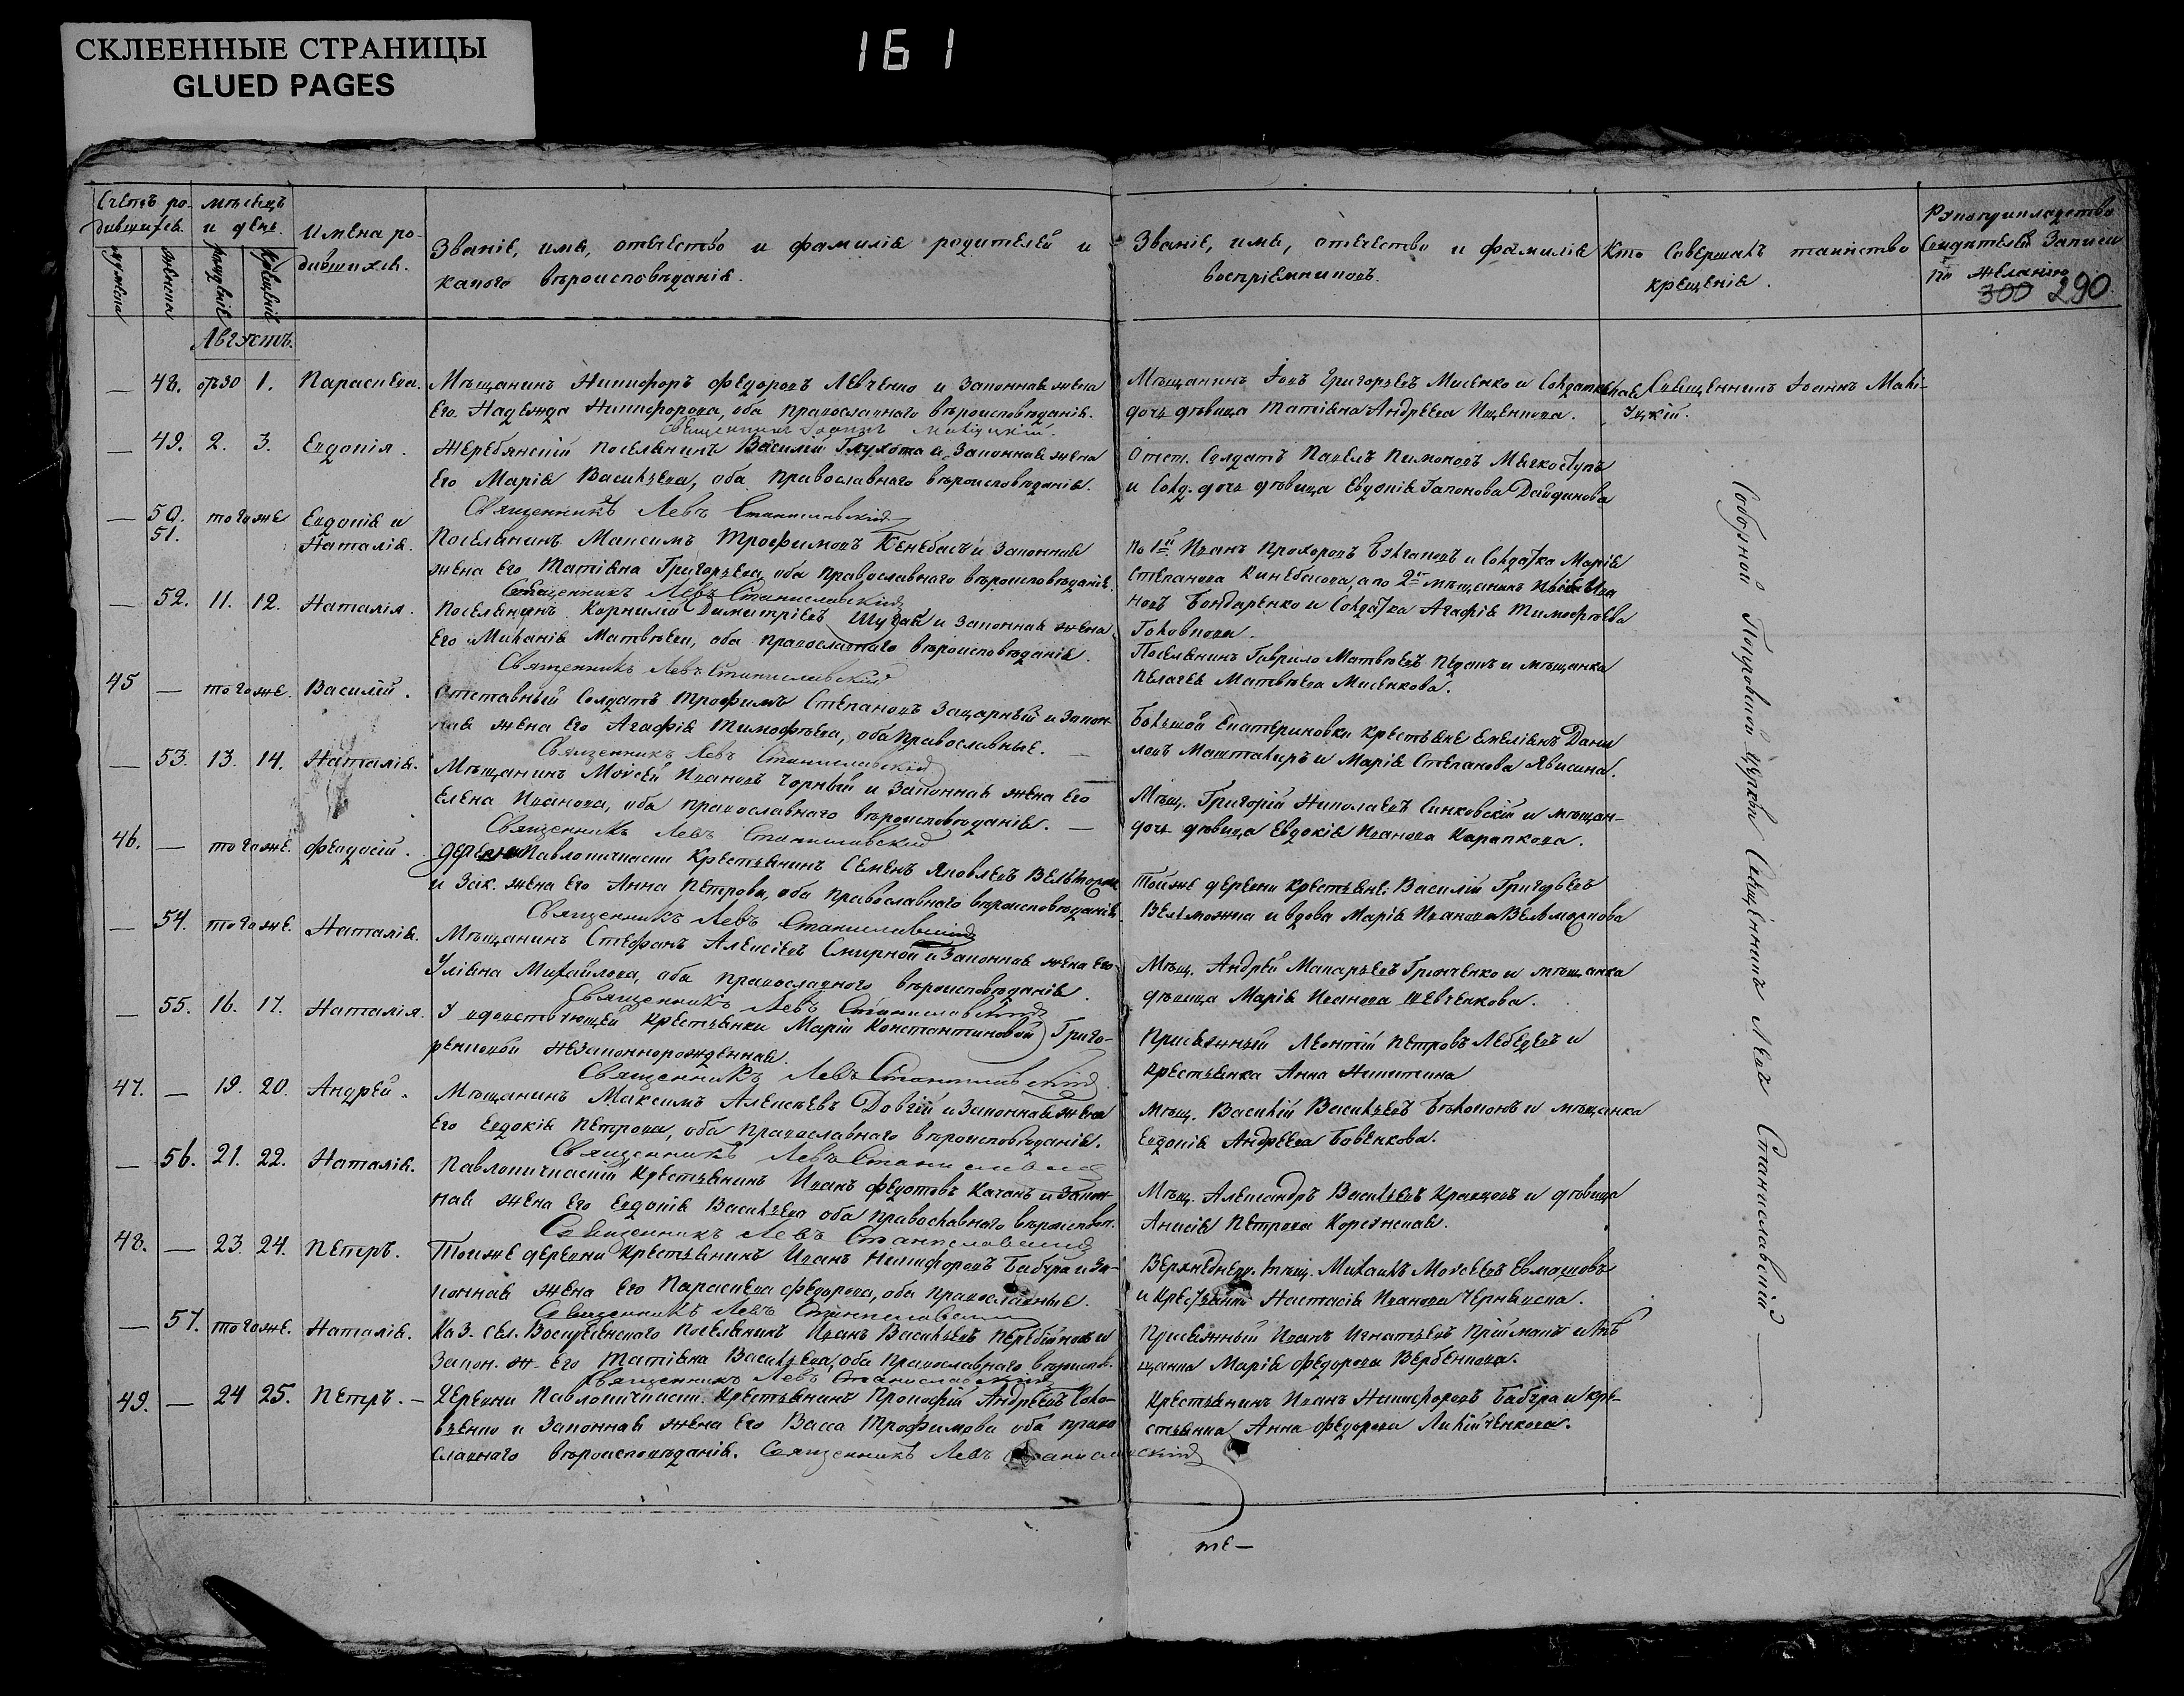 СКЛЕЕННЫЕ СТРАНИЦЫ
GLUED PAGES
161
Счетъ ро-
дившихся.
мѣсяцъ
и день.
Имена ро-
дившихся.
Званіе, имя, отечество и фамилія родителей и
какого вѣроисповѣданія.
Званіе, имя, отечество и фамилія
воспріемниковъ.
Кто совершалъ таинство
крещенія.
Рукоприкладство
свидѣтелей записи
по желанію
300 290
мужеска
женска
рожденіе
крещеніе
Августъ.
— 48. 30 1. Параскева. Мѣщанинъ Никифоръ Федоровъ Левченко и законная жена
его Надежда Никифорова, оба православнаго вѣроисповѣданія.
Священникъ Іоаннъ
Мѣщанинъ Іовъ Григорьевъ Мисенко и солдатская
дочь дѣвица Татіяна Андреева Ищенкова.
Священникъ Іоаннъ
— 49. 2. 3. Евдокія. Жеребянскій поселянинъ Василій Глухота и законная жена
его Марія Васильева, оба православнаго вѣроисповѣданія.
Священникъ Левъ Станиславскій
Отст. солдатъ Павелъ Пимоновъ
и солд. дочь дѣвица Евдокія Гапонова
— 50. 51. того же Евдокія и
Наталія.
Поселянинъ Максимъ Трофимовъ Кенебасъ и законная
жена его Татіяна Григорьева, оба православнаго вѣроисповѣданія.
Священникъ Левъ Станиславскій
по 1й Иванъ Прохоровъ и солдатка Марія
Степанова Кинебасова, а по 2й мѣщанинъ Ива
новъ Бондаренко и солдатка Агафія Тимофѣева
Головкова.
— 52. 11. 12. Наталія. Поселянинъ Корнилій Димитріевъ Шудай и законная жена
его Миланія Матвѣева, оба православнаго вѣроисповѣданія.
Священникъ Левъ Станиславскій
Поселянинъ Гаврило Матвѣевъ и мѣщанка
Пелагея Матвѣева Мисенкова.
45 — того же. Василій. Отставный солдатъ Трофимъ Степановъ Зацарный и закон-
ная жена его Агафія Тимофѣева, оба православные. —
Священникъ Левъ Станиславскій
Большой Екатериновки крестьяне Емеліанъ Дани
ловъ Машталиръ и Марія Степанова
— 53. 13. 14. Наталія. Мѣщанинъ Моисей Ивановъ Чорный и законная жена его
Елена Иванова, оба православнаго вѣроисповѣданія. —
Священникъ Левъ Станиславскій
Мѣщ. Григорій Николаевъ Синковскій и мѣщан-
дочь дѣвица Евдокія Иванова Карапкова.
46. — того же. Феодосій. деревни Павлопичкасни крестьянинъ Семенъ Яковлевъ
и зак. жена его Анна Петрова, оба православнаго вѣроисповѣданія.
Священникъ Левъ Станиславскій
Той же деревни крестьяне: Василій Григорьевъ
Вельможка и вдова Марія Иванова
— 54. того же. Наталія. Мѣщанинъ Стефанъ Алексіевъ Смирной и законная жена его
Уліяна Михайлова, оба православнаго вѣроисповѣданія.
Священникъ Левъ Станиславскій
Мѣщ. Андрей Макарьевъ Гринченко и мѣщанка
дѣвица Марія Иванова Шевченкова.
— 55. 16. 17. Наталія. У вдовствующей крестьянки Маріи Константиновой Григо-
ренковой незаконнорожденная.
Священникъ Левъ Станиславскій
Присяжный Леонтій Петровъ Лебедевъ и
крестьянка Анна Никитина
47. — 19. 20. Андрей. Мѣщанинъ Максимъ Алексѣевъ Довгій и законная жена
его Евдокія Петрова, оба православнаго вѣроисповѣданія.
Священникъ Левъ Станиславскій
Мѣщ. Василій Васильевъ и мѣщанка
Евдокія Андреева Бовенкова.
— 56. 21. 22. Наталія. Павлопичкасній крестьянинъ Иванъ Федотовъ Качанъ и закон-
ная жена его Евдокія Васильева оба православнаго вѣроисповѣд.
Священникъ Левъ Станиславскій
Мѣщ. Александръ Васильевъ Кравцовъ и дѣвица
Анисія Петрова Корсунская.
48. — 23. 24. Петръ. Той же деревни крестьянинъ Иванъ Никифоровъ Бабура и за-
конная жена его Параскева Федорова, оба православные.
Священникъ Левъ Станиславскій
Верхнеднепр. мѣщ. Михаилъ Моисеевъ
и крестьянка Настасія Иванова Чернявска.
— 57. того же. Наталія. Каз. сел. Воскресенскаго поселянинъ Иванъ Васильевъ и
закон. ж. его Татіяна Васильева, оба православнаго вѣроиспов.
Священникъ Левъ Станиславскій
Присяжный Иванъ Игнатьевъ Приймакъ и мѣ
щанка Марія Федорова Вербенкова.
49. — 24 25. Петръ. — Деревни Павлопичкасни крестьянинъ Прокофій Андреевъ Коло-
вченко и законная жена его Васса Трофимова оба право
славнаго вѣроисповѣданія. Священникъ Левъ Станиславскій
Крестьянинъ Иванъ Никифоровъ Бабура и кре-
стьянка Анна Федорова
Соборной Покровской церкви Священникъ Левъ Станиславскій
те—